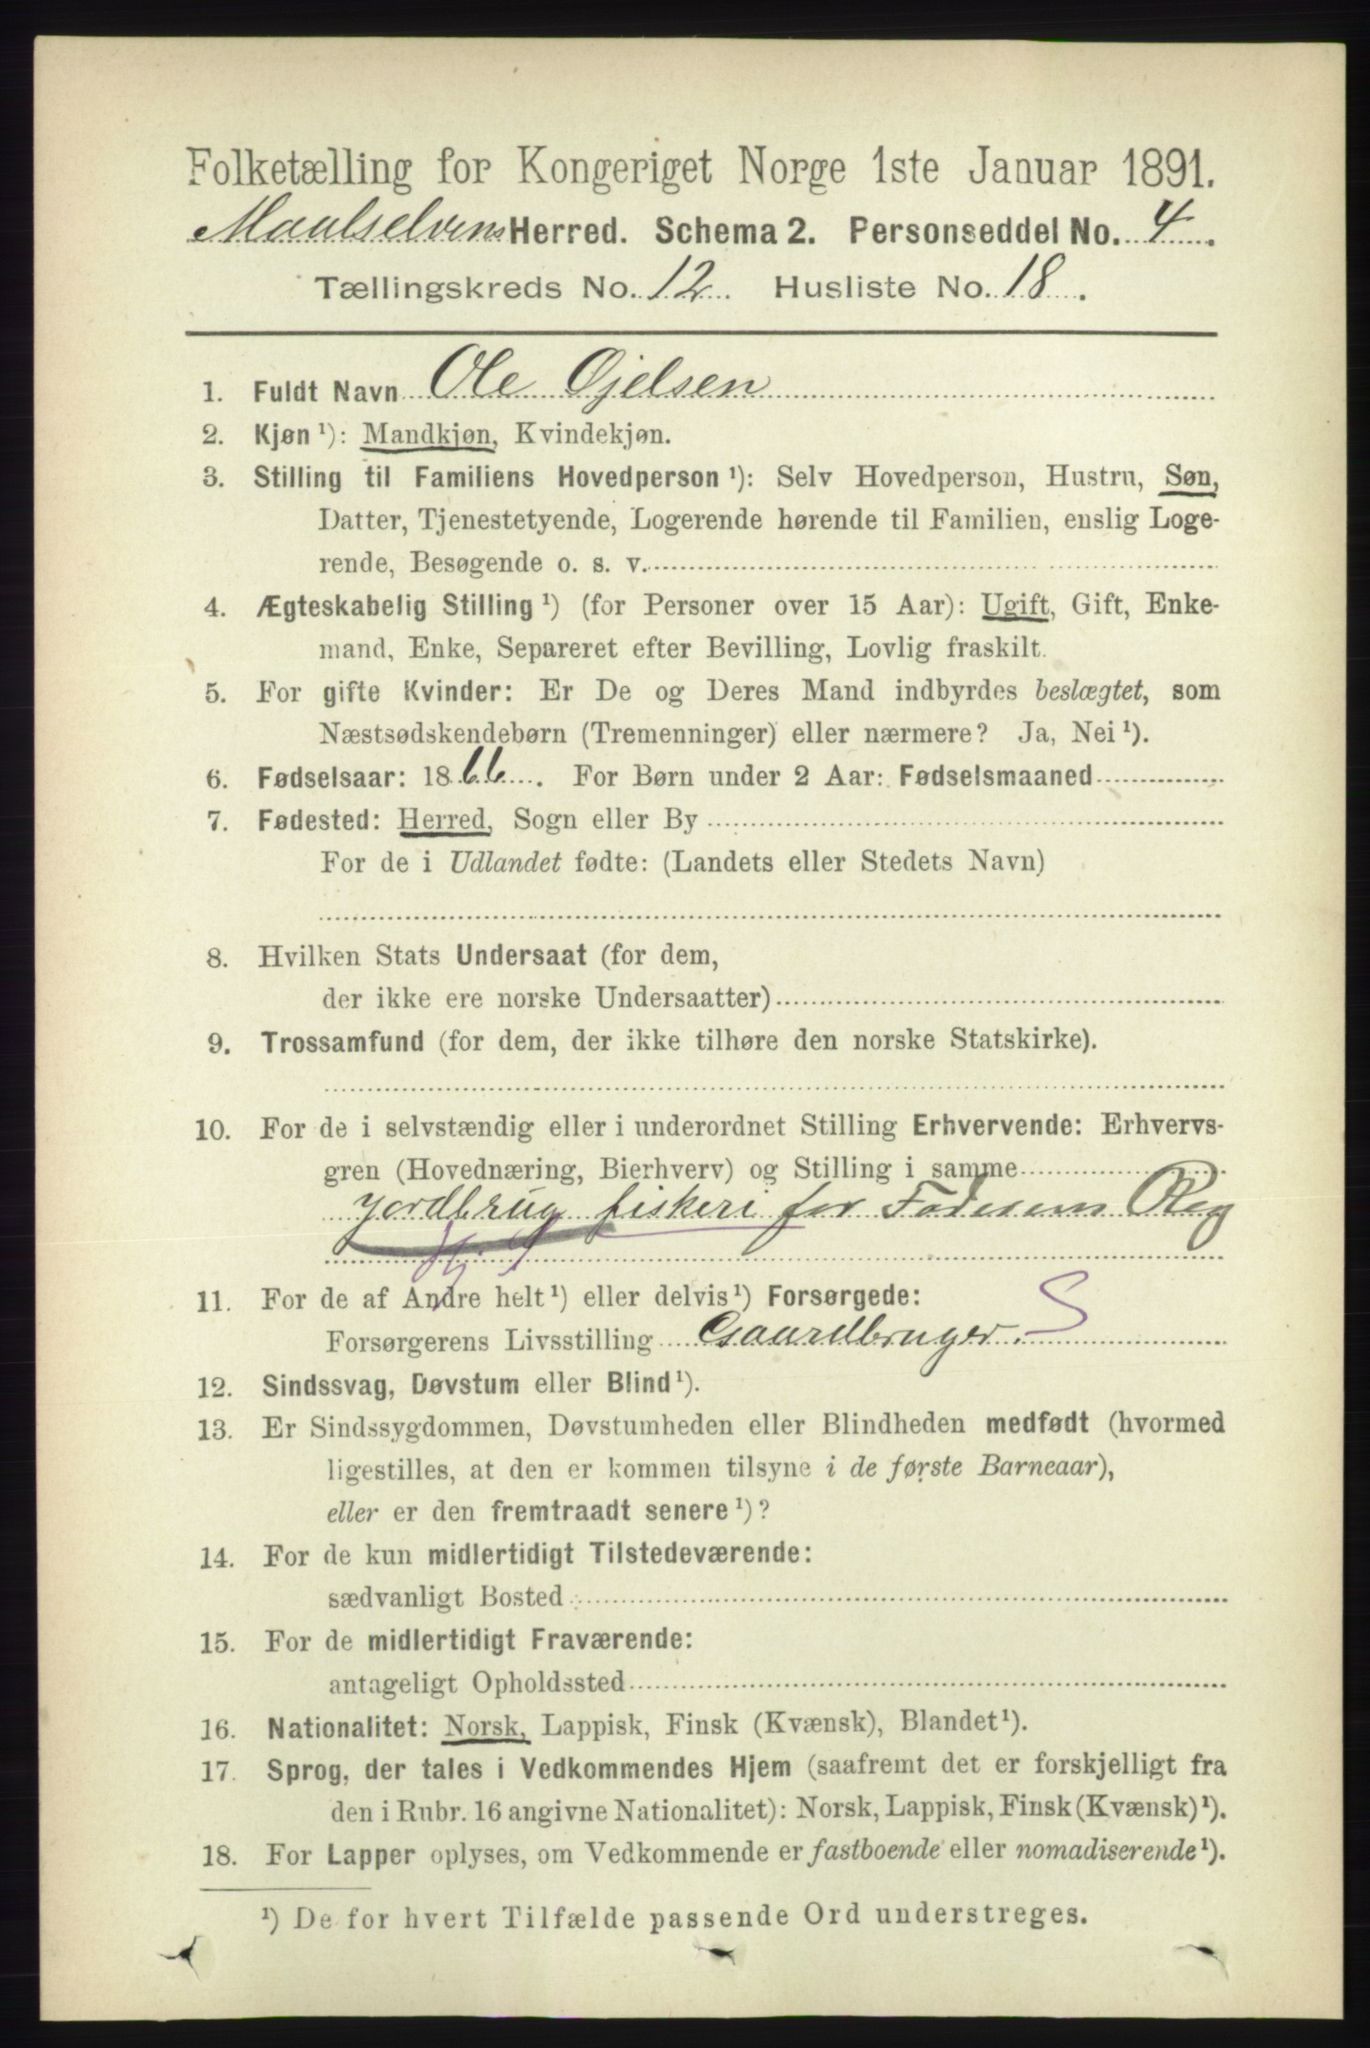 Folketælling for Kongeriget Norge 1ste Januar 1891.
Maalselvens Herred. Schema 2. Personseddel No. 4.
Tællingskreds No. 12. Husliste No. 18.
1. Fuldt Navn Ole Ojelsen
2. Kjøn ¹): Mandkjøn, Kvindekjøn.
3. Stilling til Familiens Hovedperson ¹): Selv Hovedperson, Hustru, Søn,
Datter, Tjenestetyende, Logerende hørende til Familien, enslig Loge-
rende, Besøgende o. s. v.
4. Ægteskabelig Stilling ¹) (for Personer over 15 Aar): Ugift, Gift, Enke-
mand, Enke, Separeret efter Bevilling, Lovlig fraskilt.
5. For gifte Kvinder: Er De og Deres Mand indbyrdes beslægtet, som
Næstsødskendebørn (Tremenninger) eller nærmere? Ja, Nei ¹).
6. Fødselsaar: 1866. For Børn under 2 Aar: Fødselsmaaned
7. Fødested: Herred, Sogn eller By
For de i Udlandet fødte: (Landets eller Stedets Navn)
8. Hvilken Stats Undersaat (for dem,
der ikke ere norske Undersaatter)
9. Trossamfund (for dem, der ikke tilhøre den norske Statskirke).
10. For de i selvstændig eller i underordnet Stilling Erhvervende: Erhvervs-
gren (Hovednæring, Bierhverv) og Stilling i samme
Jordbrug fiskeri for Faderens Reg
11. For de af Andre helt ¹) eller delvis ¹) Forsørgede:
Forsørgerens Livsstilling Gaardbruger. S
12. Sindssvag, Døvstum eller Blind ¹).
13. Er Sindssygdommen, Døvstumheden eller Blindheden medfødt (hvormed
ligestilles, at den er kommen tilsyne i de første Barneaar),
eller er den fremtraadt senere ¹)?
14. For de kun midlertidigt Tilstedeværende:
sædvanligt Bosted
15. For de midlertidigt Fraværende:
antageligt Opholdssted
16. Nationalitet: Norsk, Lappisk, Finsk (Kvænsk), Blandet ¹).
17. Sprog, der tales i Vedkommendes Hjem (saafremt det er forskjelligt fra
den i Rubr. 16 angivne Nationalitet): Norsk, Lappisk, Finsk (Kvænsk) ¹).
18. For Lapper oplyses, om Vedkommende er fastboende eller nomadiserende ¹).
¹) De for hvert Tilfælde passende Ord understreges.